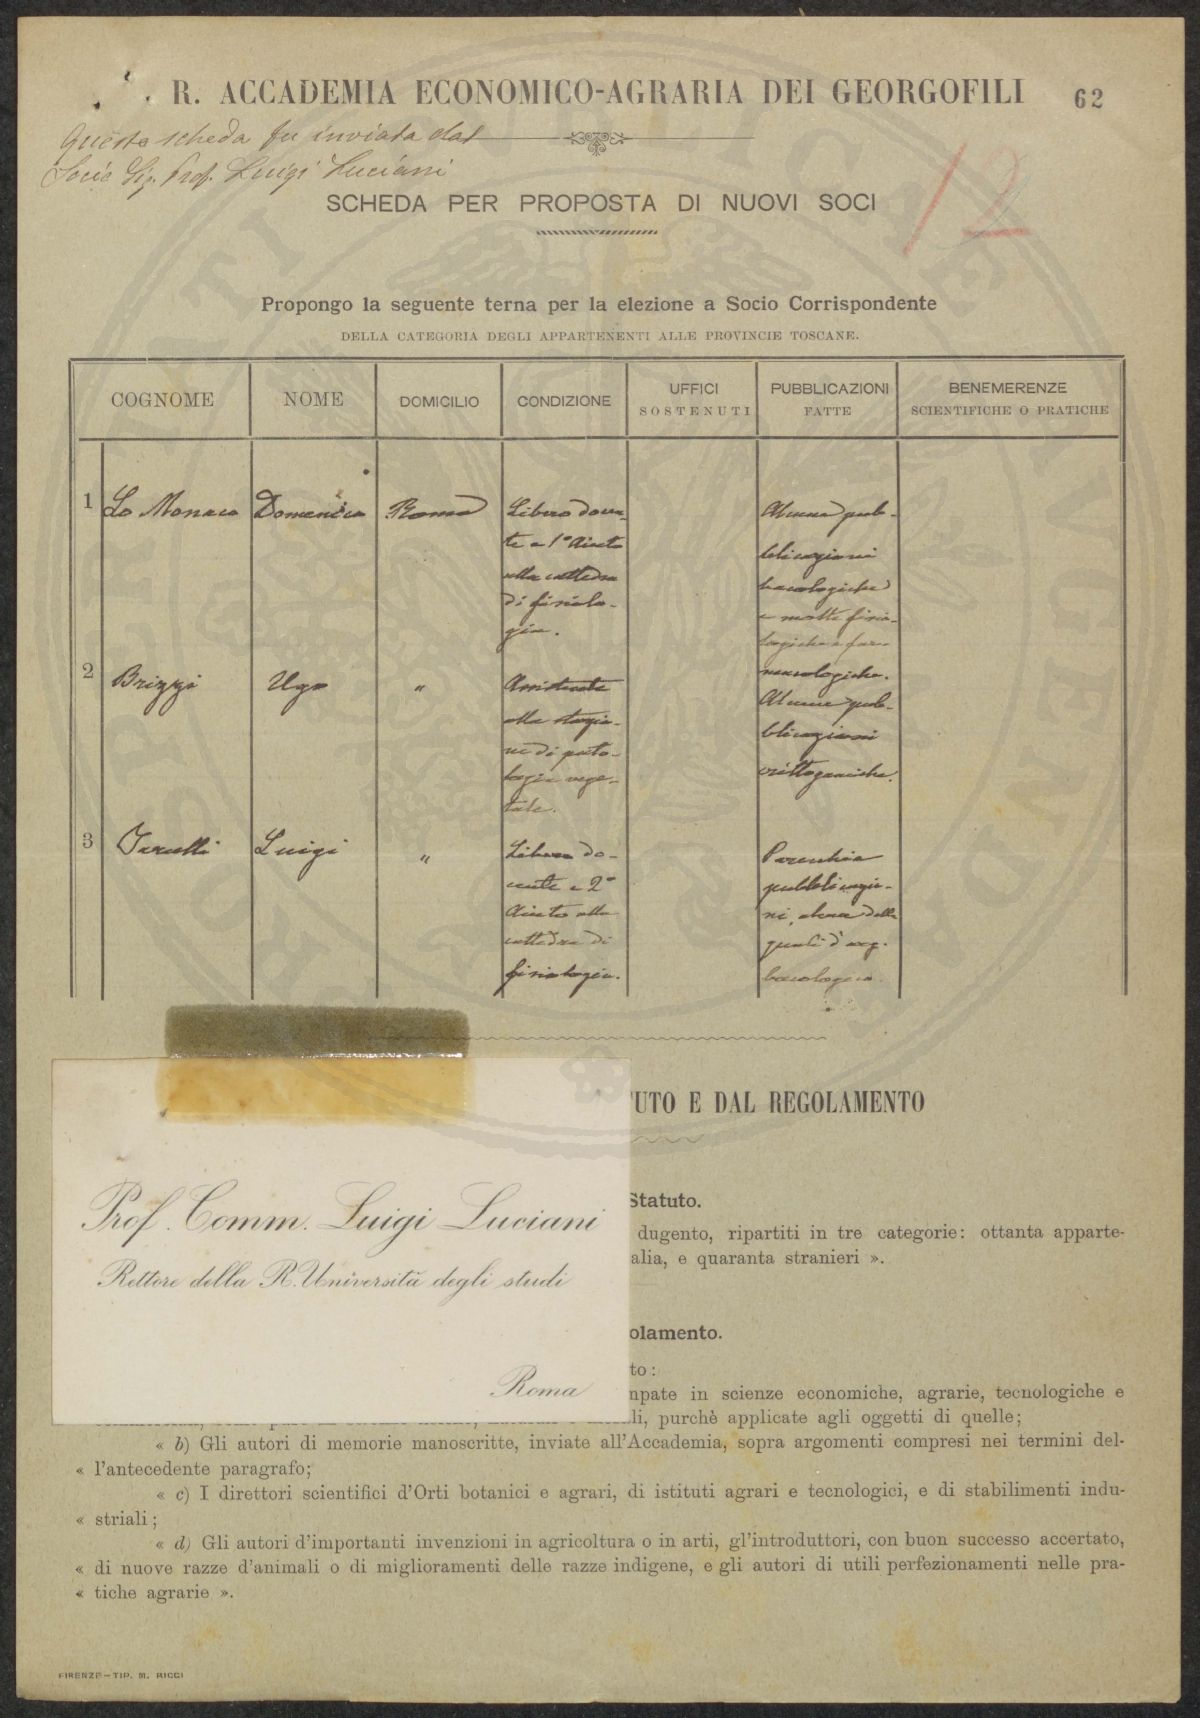 R. ACCADEMIA ECONOMICO-AGRARIA DEI GEORGOFILI
62
Questa scheda fu inviata dal
Socio Sig. Prof. Luigi Luciani
12
SCHEDA PER PROPOSTA DI NUOVI SOCI
Propongo la seguente terna per la elezione a Socio Corrispondente
DELLA CATEGORIA DEGLI APPARTENENTI ALLE PROVINCIE TOSCANE.
COGNOME
NOME
DOMICILIO
CONDIZIONE
UFFICI
SOSTENUTI
PUBBLICAZIONI
FATTE
BENEMERENZE
SCIENTIFICHE O PRATICHE
1
Lo Monaco
Domenico
Roma
Libero docen-
te e 1° Aiuto
alla cattedra
di fisiolo-
gia.
Alcune pub-
blicazioni
bacologiche
e molte fisio-
logiche e far-
macologiche.
2
Brizzi
Ugo
"
Assistente
alla stazio-
ne di pato-
logia vege-
tale.
Alcune pub-
blicazioni
crittogamiche.
3
Luigi
"
Libero do-
cente e 2°
Aiuto alla
cattedra di
fisiologia.
Parecchie
pubblicazio-
ni, alcune delle
quali d'arg.
bacologico.
TUTO E DAL REGOLAMENTO
Statuto.
dugento, ripartiti in tre categorie: ottanta apparte-
alia, e quaranta stranieri ».
olamento.
to:
mpate in scienze economiche, agrarie, tecnologiche e
li, purchè applicate agli oggetti di quelle;
« b) Gli autori di memorie manoscritte, inviate all'Accademia, sopra argomenti compresi nei termini del-
« l'antecedente paragrafo;
« c) I direttori scientifici d'Orti botanici e agrari, di istituti agrari e tecnologici, e di stabilimenti indu-
« striali;
« d) Gli autori d'importanti invenzioni in agricoltura o in arti, gl'introduttori, con buon successo accertato,
« di nuove razze d'animali o di miglioramenti delle razze indigene, e gli autori di utili perfezionamenti nelle pra-
« tiche agrarie ».
Prof. Comm. Luigi Luciani
Rettore della R. Università degli studi
Roma
FIRENZE—TIP. M. RICCI